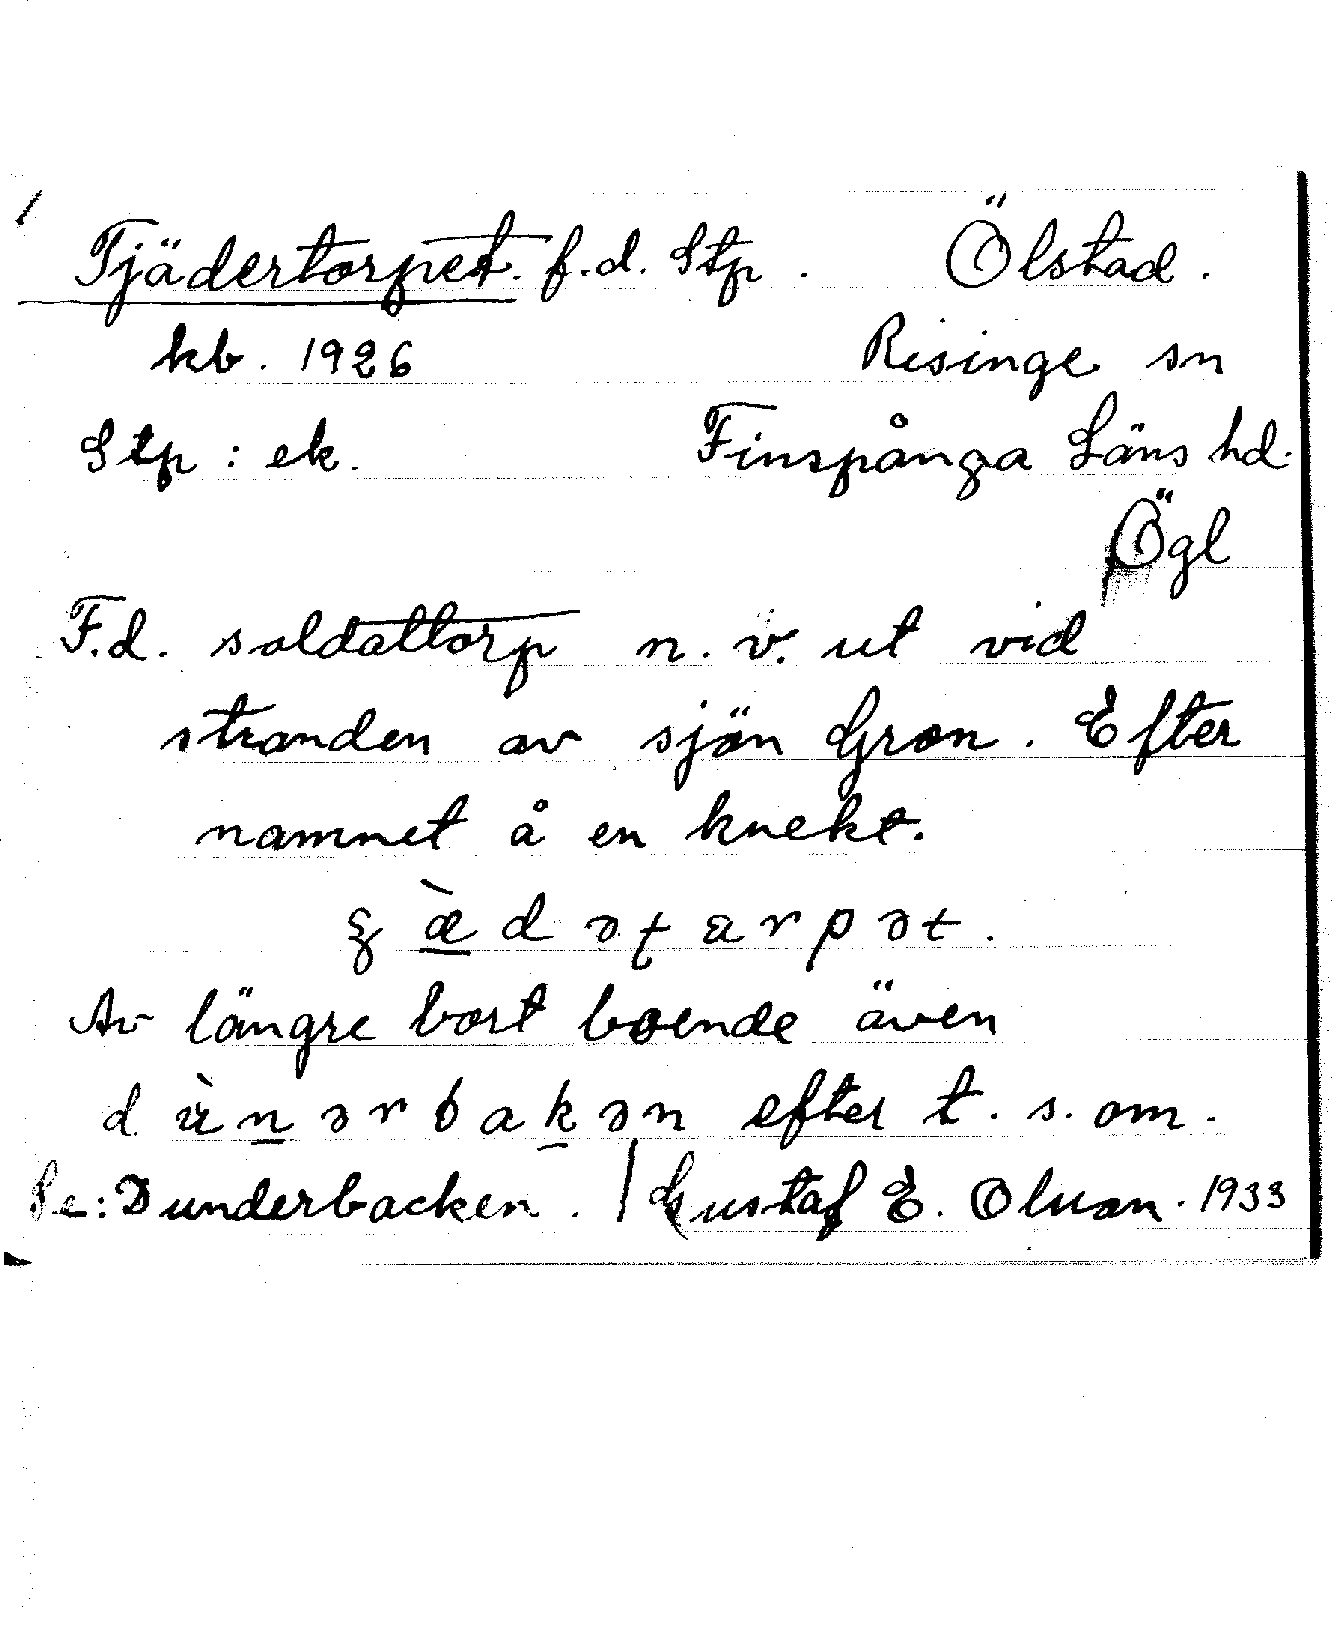 Tjädertorpet. f.d. Stp. Ölstad.
kb. 1926 Risinge sn
Stp: ek. Finspånga Läns hd.
Ögl
F.d. soldattorp n.v. ut vid
stranden av sjön Gron. Efter
namnet å en knekt.
Av längre bort boende även
efter t.s. om.
Se: Dunderbacken. / Gustaf E. Olsson. 1933